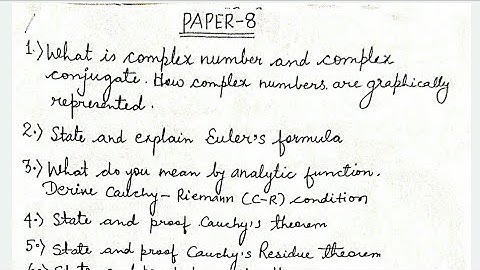 PAPER-8
1.) What is complex number and complex
conjugate. How complex numbers are graphically
represented.
2.) State and explain Euler's formula
3.) What do you mean by analytic function.
Derive Cauchy - Riemann (C-R) condition
4.) State and proof Cauchy's theorem
5.) State and proof Cauchy's Residue theorem